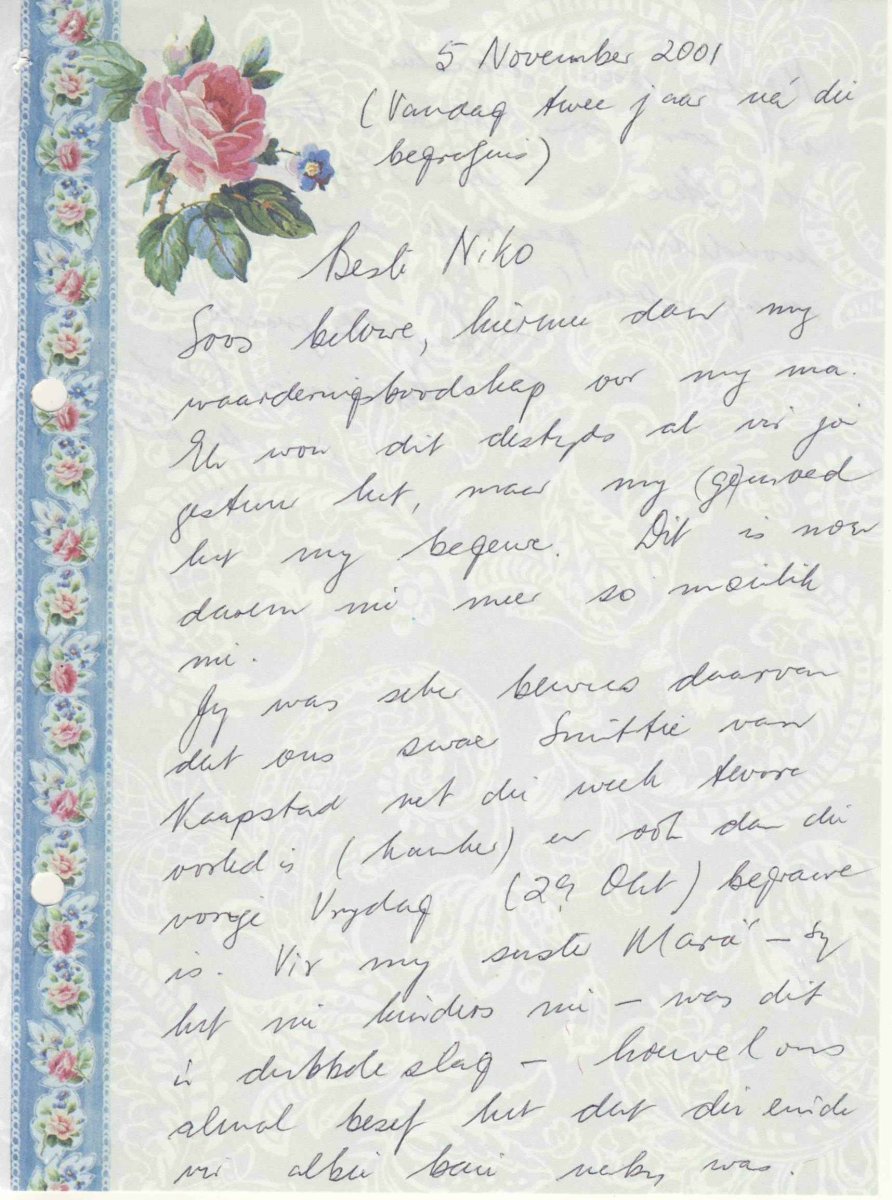 5 November 2001
(Vandag twee jaar ná die
begrafnis)
Beste Niko
Soos belowe, hiermee daar my
waarderingsboodskap oor my ma.
Ek wou dit destyds al vir jou
gestuur het, maar my (ge)moed
het my begewe. Dit is nou
darem nie meer so moeilik
nie.
Jy was seker bewus daarvan
dat ons swaer Smittie van
Kaapstad net die week tevore
oorlede is (kanker) en ook dan die
vorige Vrydag (29 Okt) begrawe
is. Vir my suster Mara – sy
het nie kinders nie – was dit
'n dubbele slag – hoewel ons
almal besef het dat die einde
vir albei baie naby was.